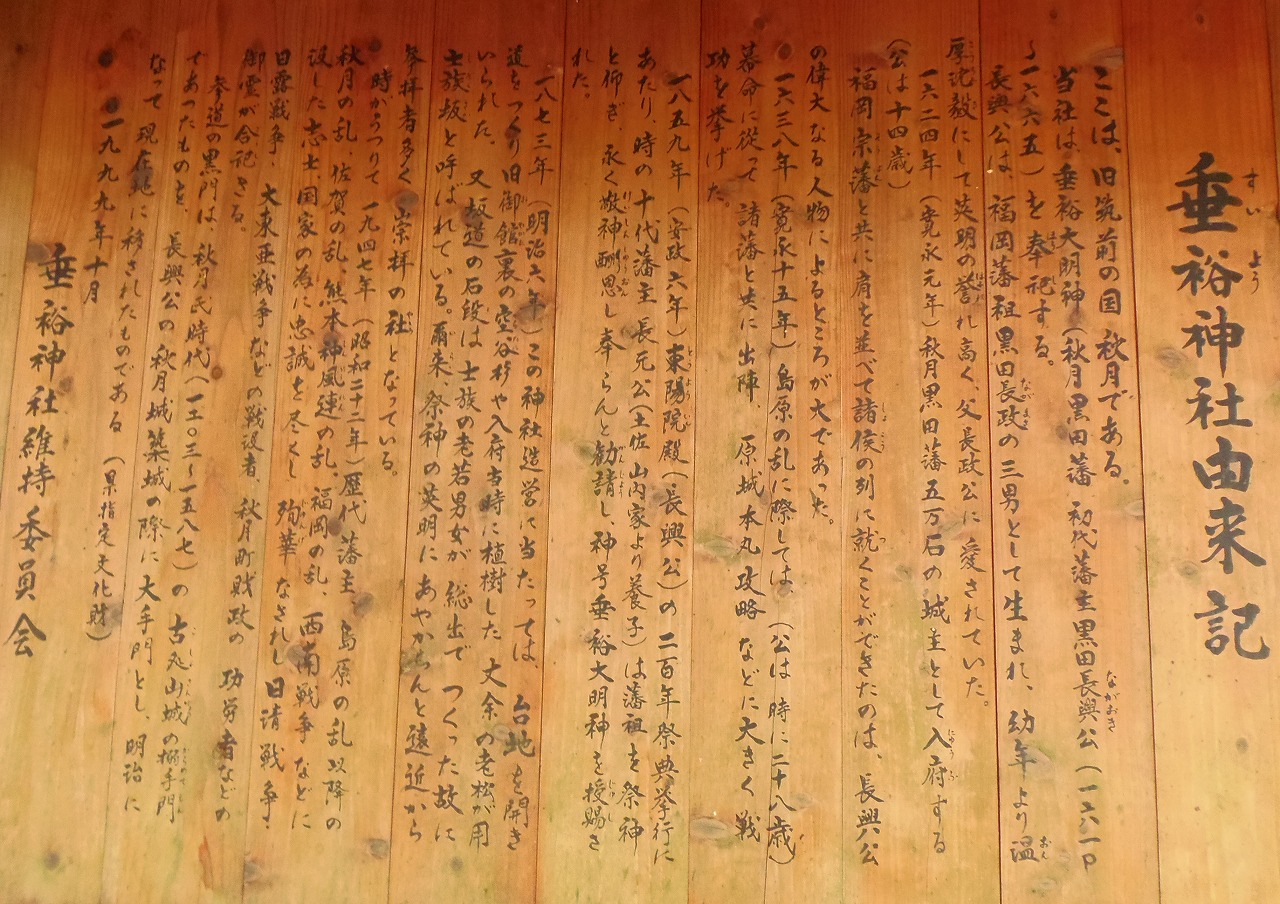 垂裕神社由来記
ここは、旧筑前の国 秋月である。
当社は、垂裕大明神(秋月黒田藩 初代藩主黒田長興公(一六一〇
～一六六五)を奉祀する。
長興公は、福岡藩祖黒田長政の三男として生まれ、幼年より温
厚沈毅にして英明の誉れ高く、父長政公に愛されていた。
一六二四年(寛永元年)秋月黒田藩五万石の城主として入府する
(公は十四歳)
福岡宗藩と共に肩を並べて諸侯の列に就くことができたのは、長興公
の偉大なる人物によるところが大であった。
一六三八年(寛永十五年)島原の乱に際しては、(公は時に二十八歳)
幕命に従って諸藩と共に出陣、原城本丸攻略などに大きく戦
功を挙げた。
一八五九年(安政六年)東陽院殿(長興公)の二百年祭典挙行に
あたり、時の十代藩主長元公(土佐山内家より養子)は藩祖を祭神
と仰ぎ、永く敬神酬恩し奉らんと勧請し、神号垂裕大明神を授賜さ
れた。
一八七三年(明治六年)この神社造営に当たっては、台地を開き
道をつくり旧御館裏の空谷杉や入府当時に植樹した丈余の老松が用
いられた。又坂道の石段は士族の老若男女が総出でつくった故に
士族坂と呼ばれている。爾来、祭神の英明にあやからんと遠近から
参拝者多く崇拝の社となっている。
時がうつりて一九四七年(昭和二十二年)歴代藩主 島原の乱以降の
秋月の乱、佐賀の乱、熊本神風連の乱、福岡の乱、西南戦争などに
設した志士国家の為に忠誠を尽くし 殉華なされし日清戦争・
日露戦争・大東亜戦争などの戦没者、秋月町財政の功労者などの
御霊が合祀さる。
参道の黒門は、秋月氏時代(一二〇三～一五八七)の古処山城の搦手門
であったものを、長興公の秋月城築城の際に大手門とし、明治に
なって現在地に移されたものである(県指定文化財)
一九九九年十月
垂裕神社維持委員会